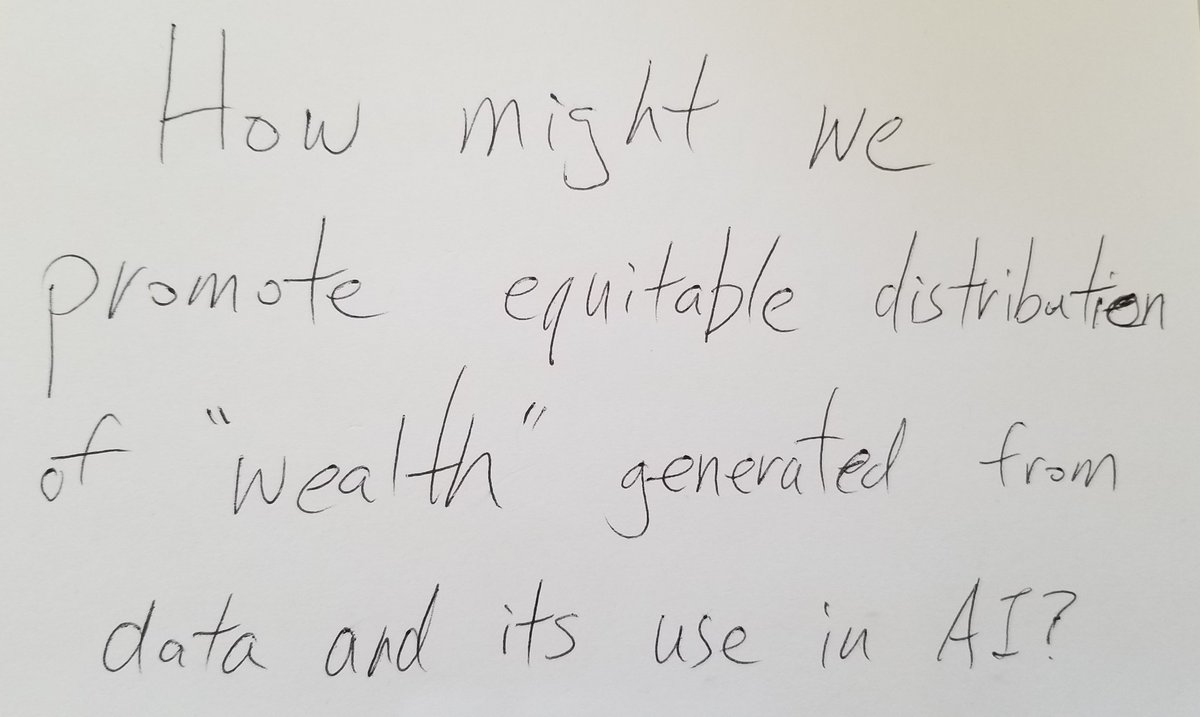 How might we
promote equitable distribution
of "wealth" generated from
data and its use in AI?